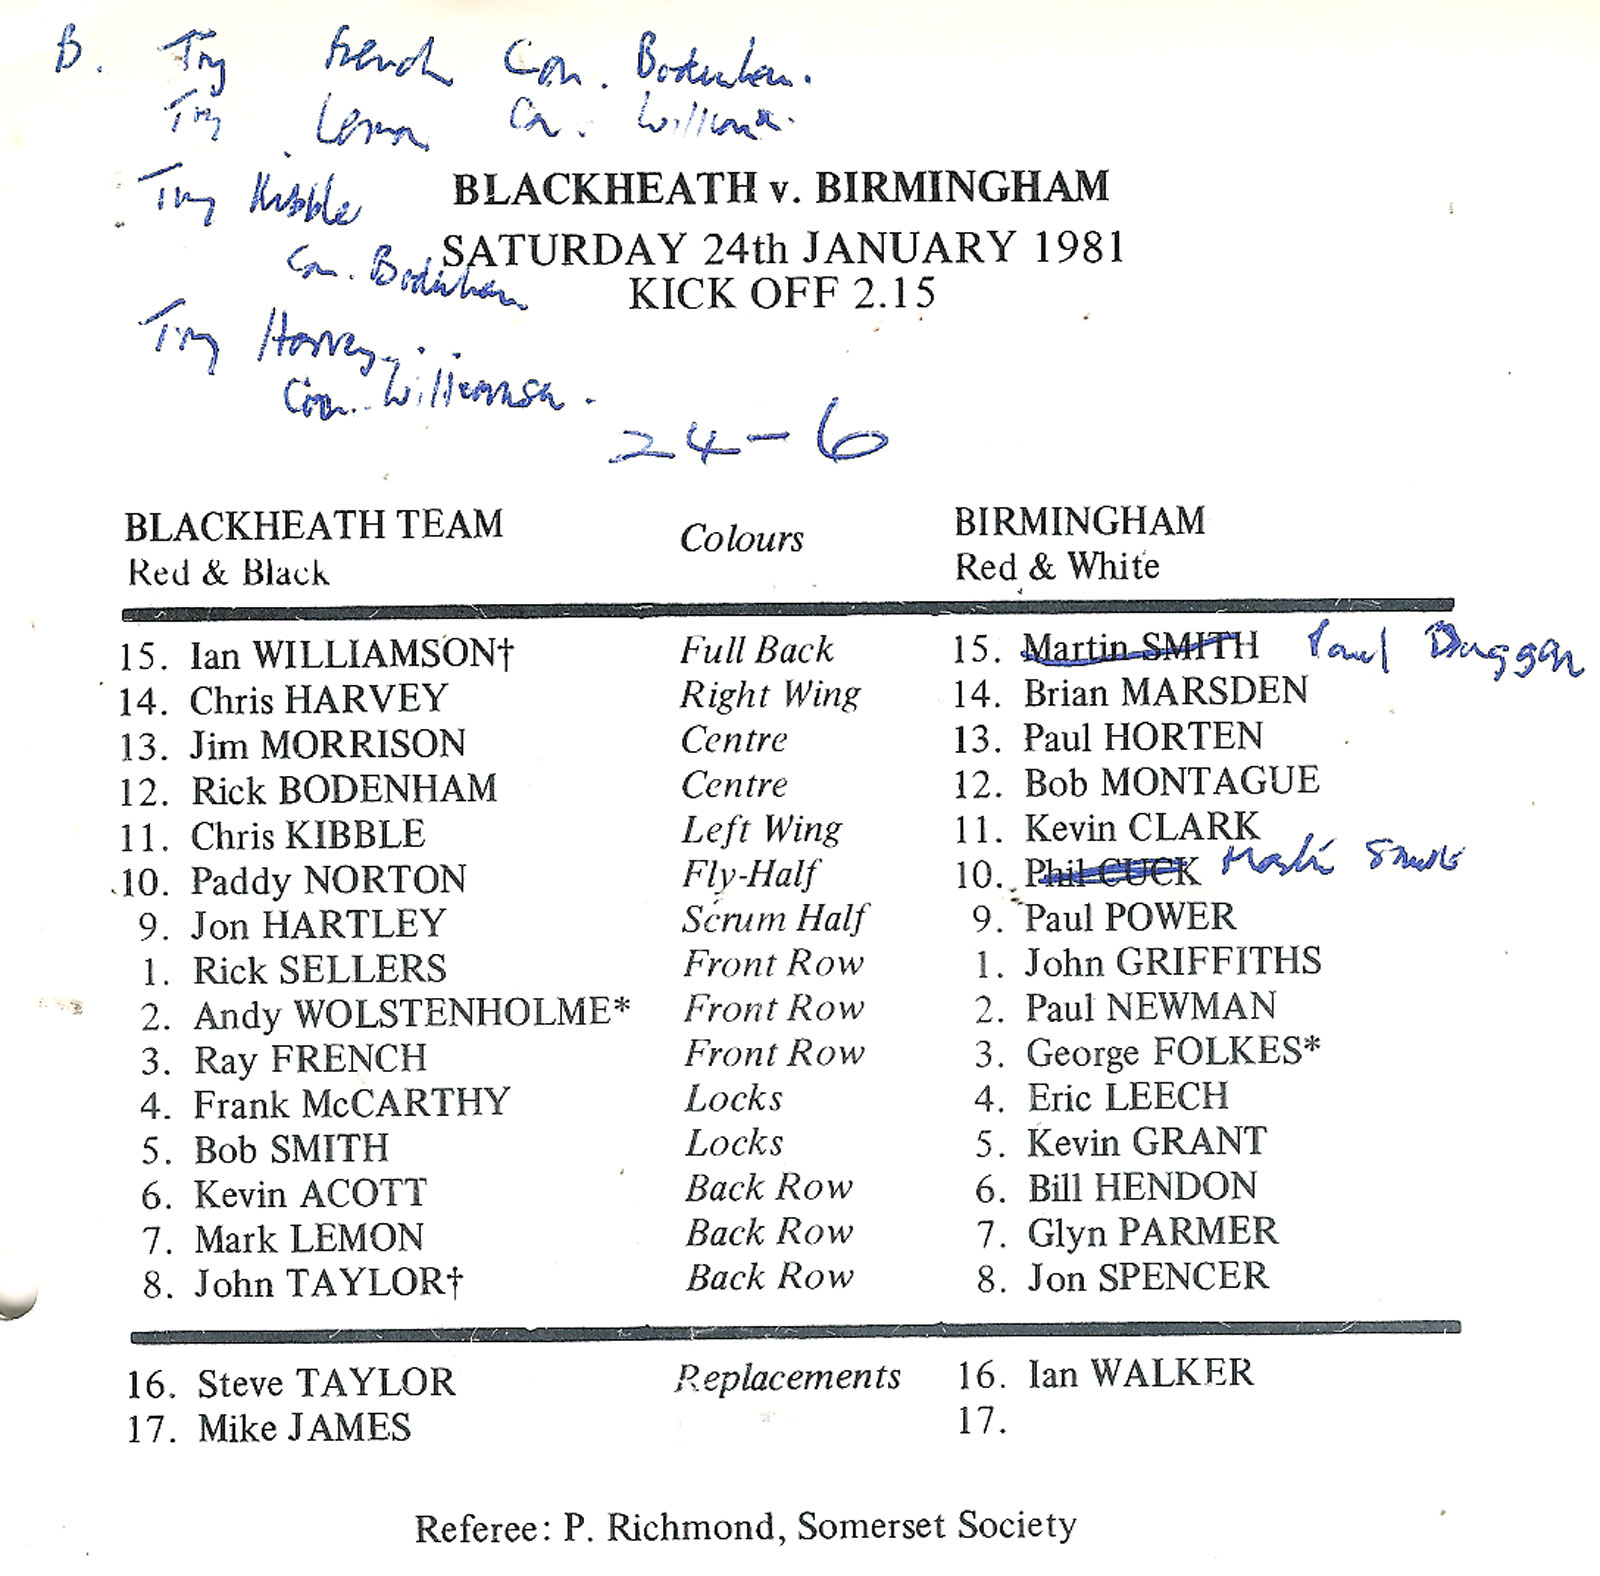 B. Try French Con. Bodenham.
Try Lemon Con. Williamson.
Try Kibble
BLACKHEATH v. BIRMINGHAM
SATURDAY 24th JANUARY 1981
Con. Bodenham
KICK OFF 2.15
Try Harvey
Con. Williamson.
24-6
BLACKHEATH TEAM Colours BIRMINGHAM
Red & Black Red & White
15. Ian WILLIAMSON† Full Back 15. Martin SMITH Paul Duggan
14. Chris HARVEY Right Wing 14. Brian MARSDEN
13. Jim MORRISON Centre 13. Paul HORTEN
12. Rick BODENHAM Centre 12. Bob MONTAGUE
11. Chris KIBBLE Left Wing 11. Kevin CLARK
10. Paddy NORTON Fly-Half 10. Phil CUCK Martin Smith
9. Jon HARTLEY Scrum Half 9. Paul POWER
1. Rick SELLERS Front Row 1. John GRIFFITHS
2. Andy WOLSTENHOLME* Front Row 2. Paul NEWMAN
3. Ray FRENCH Front Row 3. George FOLKES*
4. Frank McCARTHY Locks 4. Eric LEECH
5. Bob SMITH Locks 5. Kevin GRANT
6. Kevin ACOTT Back Row 6. Bill HENDON
7. Mark LEMON Back Row 7. Glyn PARMER
8. John TAYLOR† Back Row 8. Jon SPENCER
16. Steve TAYLOR Replacements 16. Ian WALKER
17. Mike JAMES 17.
Referee: P. Richmond, Somerset Society